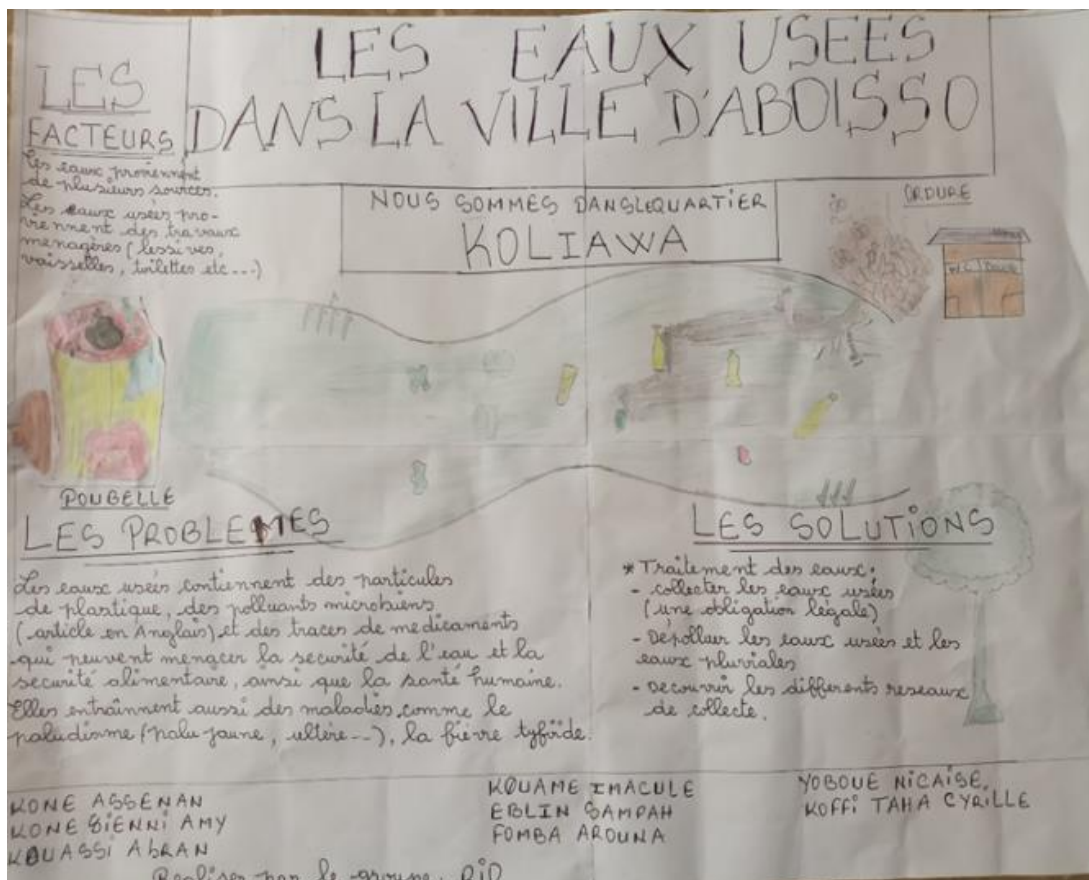 LES EAUX USEES
DANS LA VILLE D'ABOISSO
LES
FACTEURS
Les eaux proviennent
de plusieurs sources.
Les eaux usées pro-
viennent des travaux
menagères (lessives,
vaisselles, toilettes etc...)
NOUS SOMMES DANS LE QUARTIER
KOLIAWA
ORDURE
W.C DOUCHE
POUBELLE
LES PROBLEMES
Les eaux usées contiennent des particules
de plastique, des polluants microbiens
(article en Anglais) et des traces de medicaments
qui peuvent menacer la securité de l'eau et la
securité alimentaire, ainsi que la santé humaine.
Elles entraînnent aussi des maladies comme le
paludisme (palu jaune, ultère--), la fièvre tyfoïde.
LES SOLUTIONS
* Traitement des eaux.
- collecter les eaux usées
(une obligation légale)
- Dépolluer les eaux usées et les
eaux pluviales
- Decouvrir les différents reseaux
de collecte.
KONE ASSENAN
KONE SIENNI AMY
KOUASSI AbRAN
KOUAME IMACULE
EBLIN SAMPAH
FOMBA AROUNA
YOBOUE NICAISE,
KOFFI TAHA CYRILLE
Realiser par le groupe: